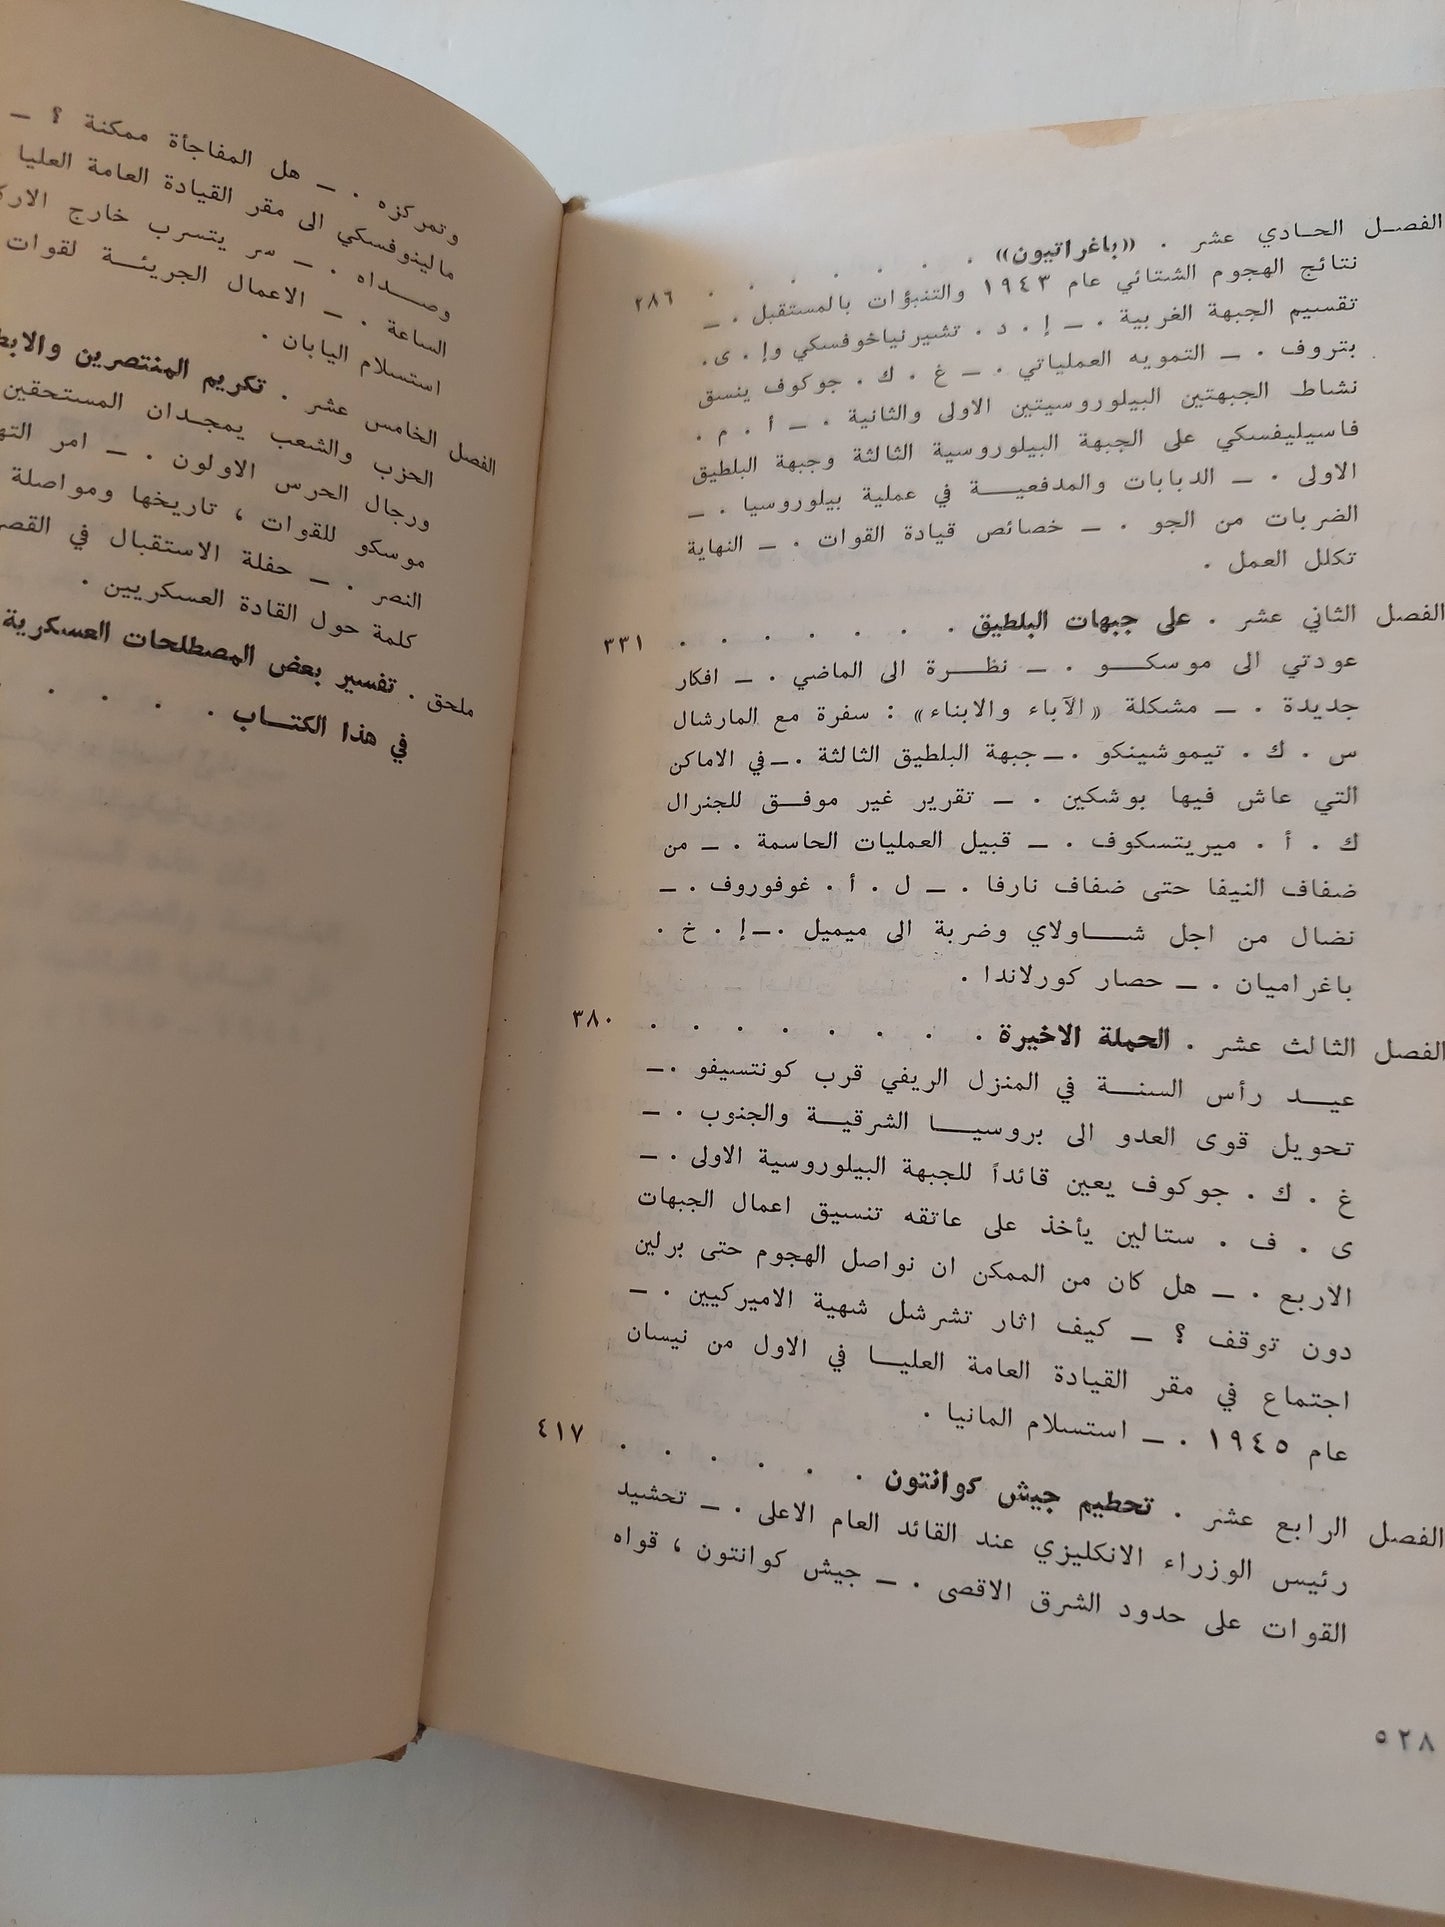 الفصل الحادي عشر . «باغراتيون» . . . . . . . ٢٨٦
نتائج الهجوم الشتائي عام ١٩٤٣ والتنبؤات بالمستقبل . —
تقسيم الجبهة الغربية . — إ . د . تشيرنياخوفسكي وإ . ى .
بتروف . — التمويه العملياتي . — غ . ك . جوكوف ينسق
نشاط الجبهتين البيلوروسيتين الاولى والثانية . — أ . م .
فاسيليفسكي على الجبهة البيلوروسية الثالثة وجبهة البلطيق
الاولى . — الدبابات والمدفعية في عملية بيلوروسيا . —
الضربات من الجو . — خصائص قيادة القوات . — النهاية
تكلل العمل .
الفصل الثاني عشر . على جبهات البلطيق . . . . . . . ٣٣١
عودتي الى موسكو . — نظرة الى الماضي . — افكار
جديدة . — مشكلة «الآباء والابناء» : سفرة مع المارشال
س . ك . تيموشينكو . — جبهة البلطيق الثالثة . — في الاماكن
التي عاش فيها بوشكين . — تقرير غير موفق للجنرال
ك . أ . ميريتسكوف . — قبيل العمليات الحاسمة . — من
ضفاف النيفا حتى ضفاف نارفا . — ل . أ . غوفوروف . —
نضال من اجل شاولاي وضربة الى ميميل . — إ . خ .
باغراميان . — حصار كورلاندا .
الفصل الثالث عشر . الحملة الاخيرة . . . . . . . ٣٨٠
عيد رأس السنة في المنزل الريفي قرب كونتسيفو . —
تحويل قوى العدو الى بروسيا الشرقية والجنوب . —
غ . ك . جوكوف يعين قائداً للجبهة البيلوروسية الاولى . —
ى . ف . ستالين يأخذ على عاتقه تنسيق اعمال الجبهات
الاربع . — هل كان من الممكن ان نواصل الهجوم حتى برلين
دون توقف ؟ — كيف اثار تشرشل شهية الاميركيين . —
اجتماع في مقر القيادة العامة العليا في الاول من نيسان
عام ١٩٤٥ . — استسلام المانيا .
الفصل الرابع عشر . تحطيم جيش كوانتون . . . . . . ٤١٧
رئيس الوزراء الانكليزي عند القائد العام الاعلى . — تحشيد
القوات على حدود الشرق الاقصى . — جيش كوانتون ، قواه
٥٢٨
وتمركزه . — هل المفاجأة ممكنة ؟ —
مالينوفسكي الى مقر القيادة العامة العليا
وصداه . — سر يتسرب خارج
الساعة . — الاعمال الجريئة لقوات
استسلام اليابان .
الفصل الخامس عشر . تكريم المنتصرين
الحزب والشعب يمجدان المستحقين
ورجال الحرس الاولون . — امر
موسكو للقوات ، تاريخها ومواصلة
النصر . — حفلة الاستقبال في
كلمة حول القادة العسكريين .
ملحق . تفسير بعض المصطلحات العسكرية
في هذا الكتاب . . . . .